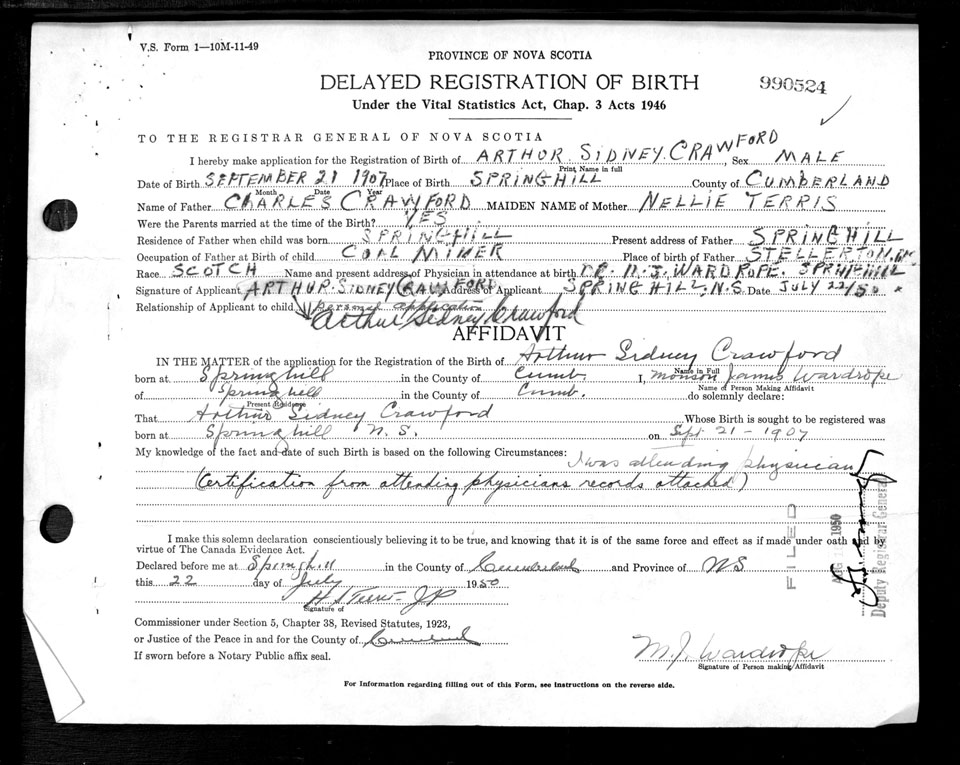 V.S. Form 1—10M-11-49
PROVINCE OF NOVA SCOTIA
DELAYED REGISTRATION OF BIRTH
990524
Under the Vital Statistics Act, Chap. 3 Acts 1946
TO THE REGISTRAR GENERAL OF NOVA SCOTIA
I hereby make application for the Registration of Birth of ARTHUR SIDNEY CRAWFORD, Sex MALE
Print, Name in full
Date of Birth SEPTEMBER 21 1907 Place of Birth SPRINGHILL County of CUMBERLAND
Month Date Year
Name of Father CHARLES CRAWFORD MAIDEN NAME of Mother NELLIE TERRIS
Were the Parents married at the time of the Birth? YES
Residence of Father when child was born SPRINGHILL Present address of Father SPRINGHILL
Occupation of Father at Birth of child COAL MINER Place of birth of Father STELLERTON
Race SCOTCH Name and present address of Physician in attendance at birth DR. M. J. WARDROPE. SPRINGHILL
Signature of Applicant ARTHUR SIDNEY CRAWFORD Address of Applicant SPRINGHILL, N.S. Date JULY 22/50
Relationship of Applicant to child personal application
Arthur Sidney Crawford
AFFIDAVIT
IN THE MATTER of the application for the Registration of Birth of Arthur Sidney Crawford
Name in Full
born at Springhill in the County of Cumb. I, Monson James Wardrope
Name of Person Making Affidavit
of Springhill in the County of Cumb. do solemnly declare:
Present Residence
That Arthur Sidney Crawford Whose Birth is sought to be registered was
born at Springhill N.S. on Sept 21-1907
My knowledge of the fact and date of such Birth is based on the following Circumstances: I was attending physician
(Certification from attending physicians records attached)
I make this solemn declaration conscientiously believing it to be true, and knowing that it is of the same force and effect as if made under oath and by
virtue of The Canada Evidence Act.
Declared before me at Springhill in the County of Cumberland and Province of NS
this 22 day of July 1950
Signature of
JP
Commissioner under Section 5, Chapter 38, Revised Statutes, 1923,
or Justice of the Peace in and for the County of Cumberland
If sworn before a Notary Public affix seal.
M. J. Wardrope
Signature of Person making Affidavit
For Information regarding filling out of this Form, see Instructions on the reverse side.
FILED
AUG 1950
Deputy Registrar General